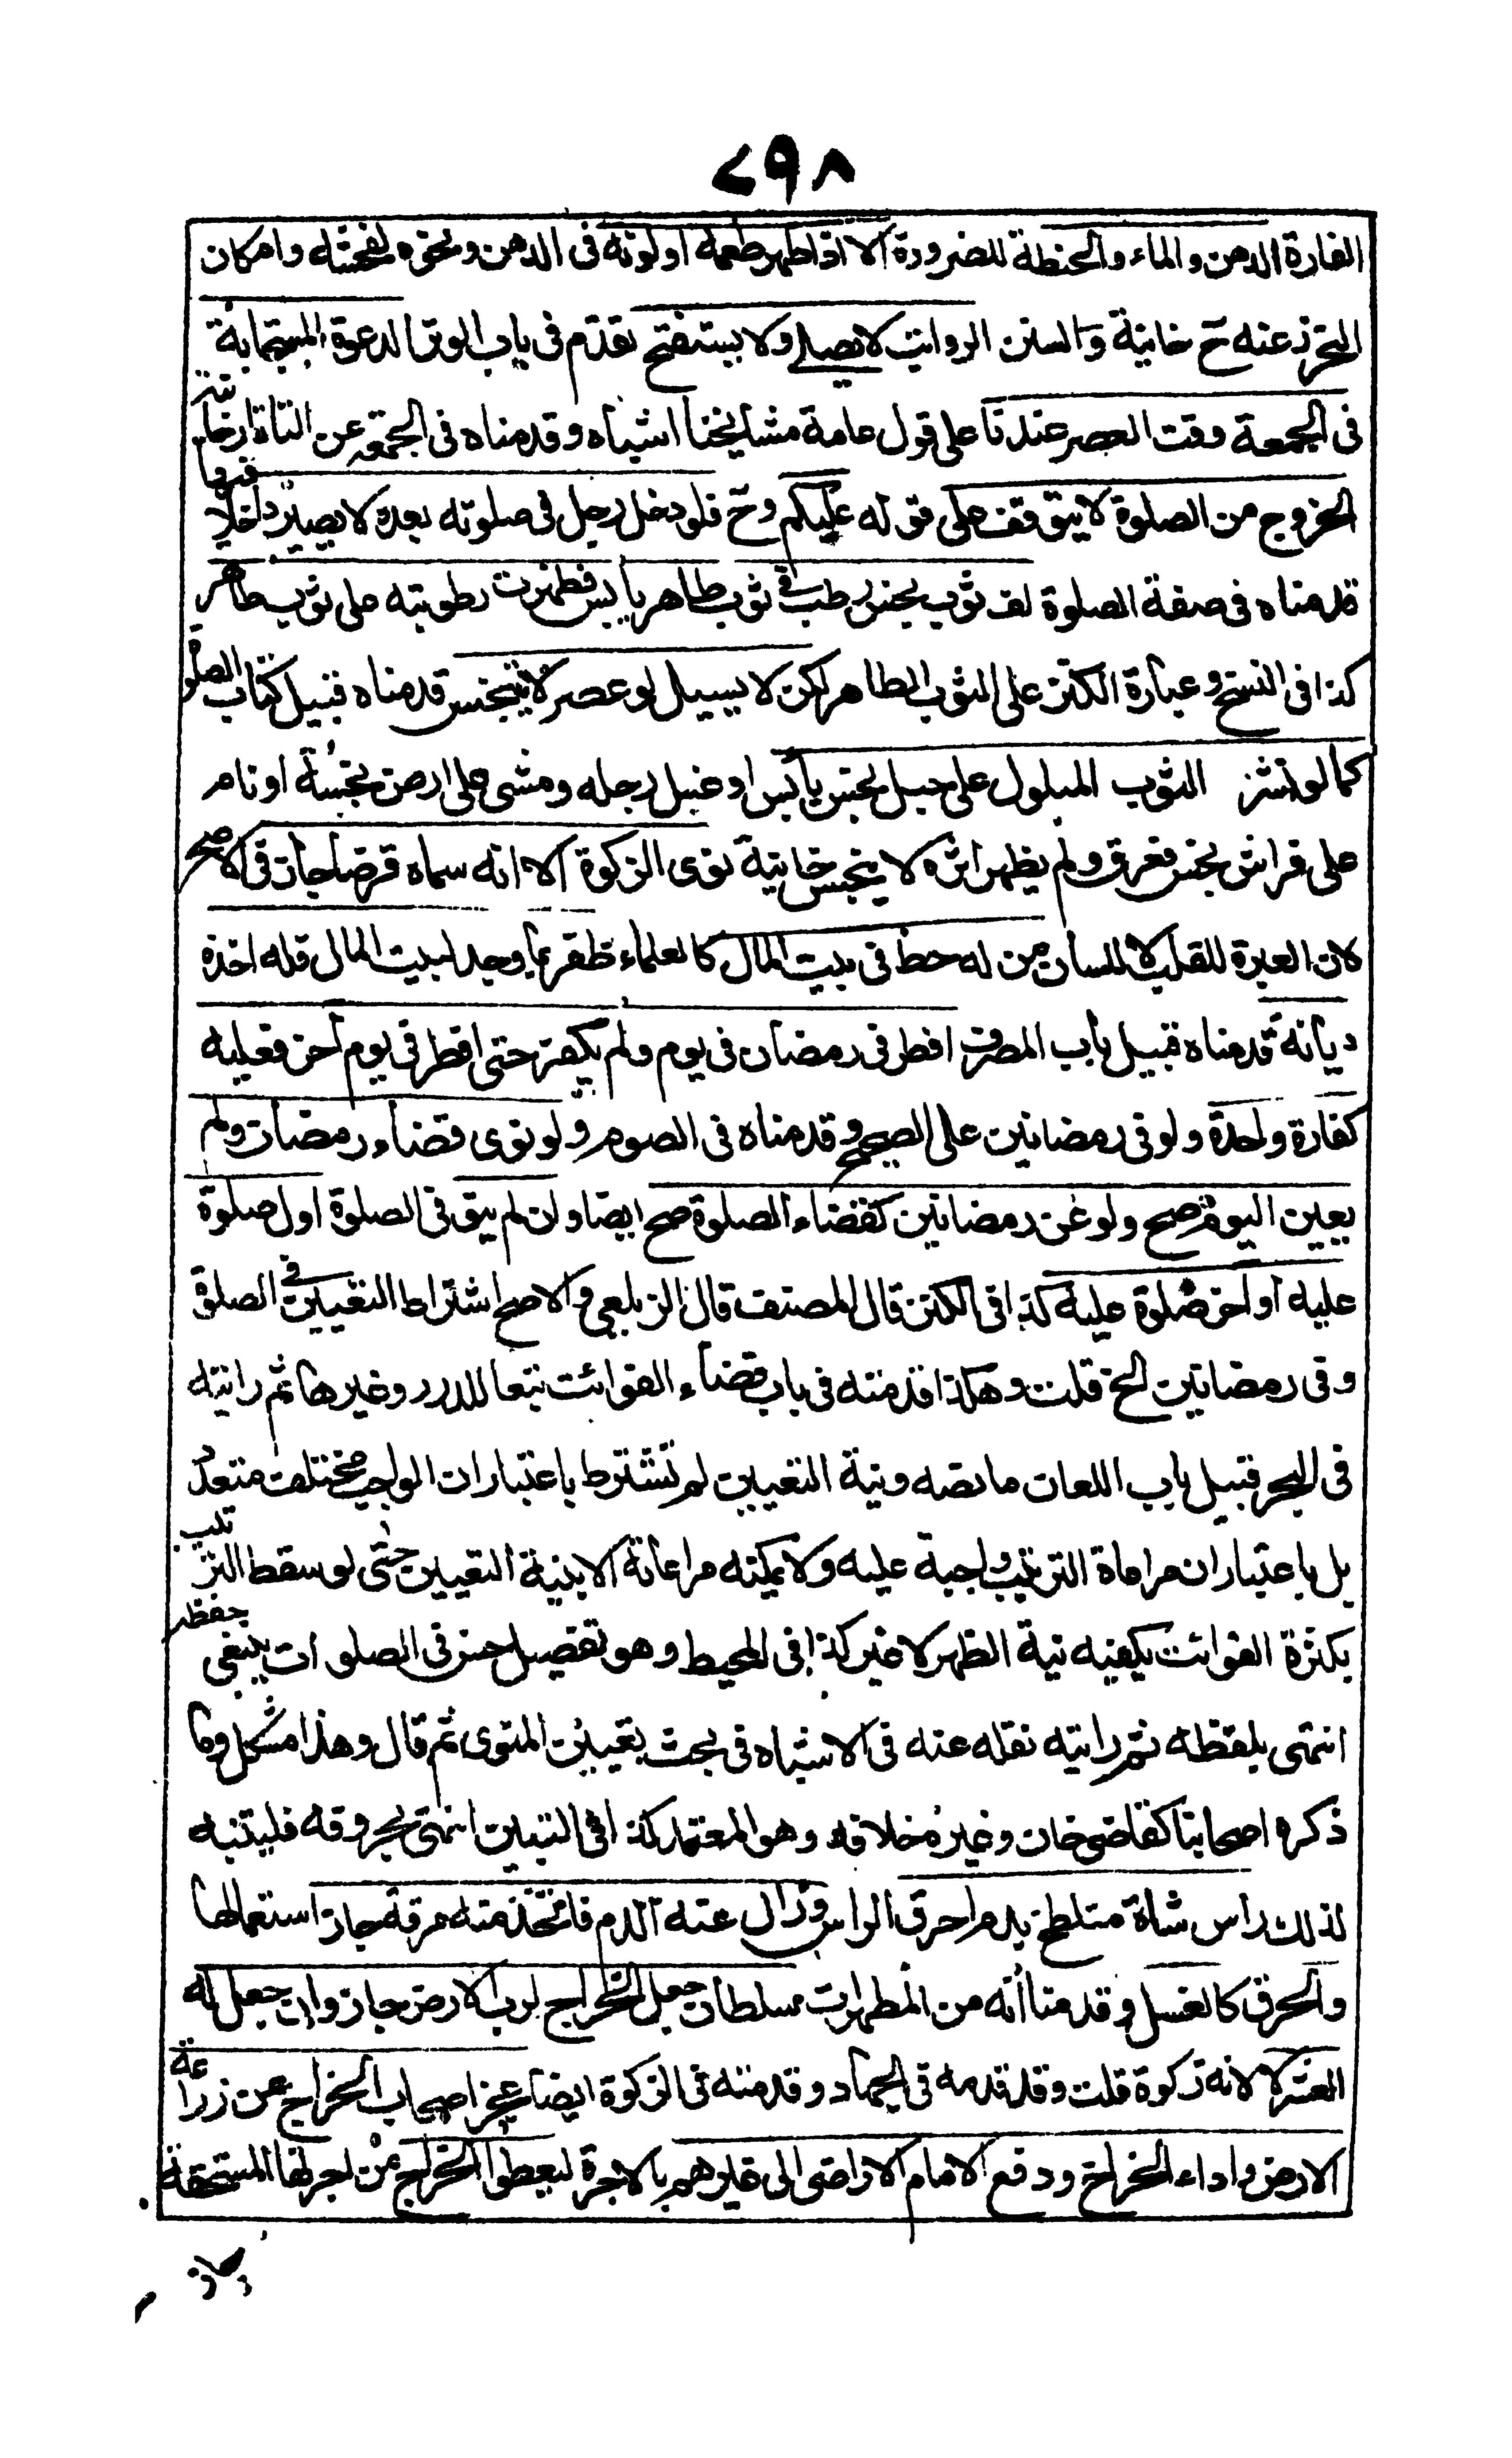 ٧٩٨
الفارة الدهن والماء والحنطة للضرورة الا اذا ظهر طعمه او لونه فى الدهن ونحوه لفحشه وامكان
التحرز عنه ح خانية والسنن الرواتب لا يصلى ولا يستفتح تقدم فى باب الوتر الدعوة المستجابة
فى الجمعة وقت العصر عندنا على قول عامة مشايخنا اشباه وقدمناه فى الجمعة عن التاترخانية
الخروج من الصلوة لا يتوقف على قوله عليكم وح فلو دخل رجل فى صلوته بعده لا يصير داخلا فيها
قدمناه فى صفة الصلوة لف ثوب نجس رطب فى ثوب طاهر يابس فظهرت رطوبته على ثوب طاهر
كذا فى النسخ وعبارة الكنز على الثوب الطاهر لكن لا يسيل لو عصر لا يتنجس قدمناه قبيل كتاب الصلوة
كما لو نشر الثوب المبلول على حبل نجس يابس او غسل رجله ومشى على ارض نجسة او نام
على فراش نجس فعرق ولم يظهر اثره لا يتنجس خانية نوى الزكوة الا انه سماه قرضا جاز فى الاصح
لان العبرة للقلب لا للسان من له حظ فى بيت المال كالعلماء ظفر بما وجد لبيت المال فله اخذه
ديانة قدمناه قبيل باب المصرف افطر فى رمضان فى يوم ولم يكفر حتى افطر فى يوم آخر فعليه
كفارة واحدة ولو فى رمضانين على الصحيح وقدمناه فى الصوم ولو نوى قضاء رمضان ولم
يعين اليوم صح ولو عن رمضانين كقضاء الصلوة صح ايضا وان لم ينو فى الصلوة اول صلوة
عليه او آخر صلوة عليه كذا فى الكنز قال المصنف قال الزيلعي والاصح اشتراط التعيين فى الصلوة
وفى رمضانين الخ قلت وهكذا قدمته فى باب قضاء الفوائت تبعا للدرر وغيرها ثم رايته
فى البحر قبيل باب اللعان ما نصه ونية التعيين لم تشترط باعتبار ان الواجب مختلف متعدد
بل باعتبار ان مراعاة الترتيب واجبة عليه ولا يمكنه مراعاته الا بنية التعيين حتى لو سقط الترتيب
بكثرة الفوائت يكفيه نية الظهر لا غير كذا فى المحيط وهو تفصيل حسن فى الصلوات ينبغى حفظه
انتهى بلفظه ثم رايته نقله عنه فى الاشباه فى بحث تعيين المنوى ثم قال وهذا مشكل وما
ذكره اصحابنا كقاضى خان وغيره خلافه وهو المعتمد كذا فى التبيين انتهى بحروفه فليتنبه
لذلك راس شاة متلطخ بدم احرق الراس وزال عنه الدم فاتخذ منه مرقة جاز استعمالها
والحرق كالغسل وقدمنا انه من المطهرات سلطان جعل الخراج لرب الارض جاز وان جعل له
العشر لا لانه زكوة قلت وقد قدمه فى الجهاد وقدمته فى الزكوة ايضا عجز اصحاب الخراج عن زراعة
الارض واداء الخراج ودفع الامام الاراضى الى غيرهم بالاجرة ليعطوا الخراج من اجرتها المستحقة